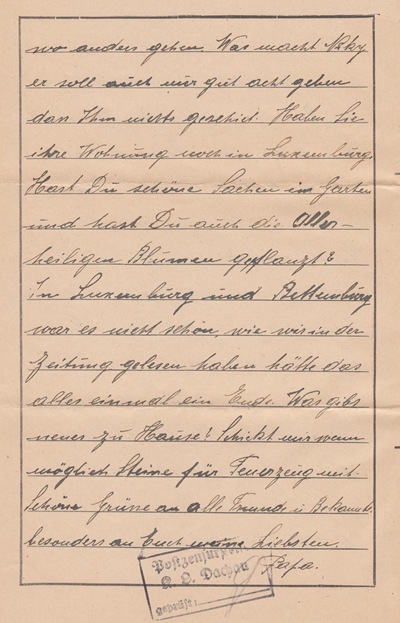 wo anders gehen. Was macht Nicky
er soll auch nur gut acht geben
das Ihm nichts geschict. Haben Sie
ihre Wohnung noch in Luxemburg.
Hast Du schöne Sachen im Garten
und hast Du auch die Aller-
heiligen Blumen gepflanzt?
In Luxemburg und Bettemburg
war es nicht schön, wie wir in der
Zeitung gelesen haben hätte das
alles einmal ein Ende. Was gibs
neues zu Hause? Schickt mir wenn
möglich Steine für Feuerzeug mit.
Schöne Grüsse an alle Freunde u Bekannte
besonders an Euch meine Liebsten.
Papa.
Postzensurstelle
K. L. Dachau
geprüft: